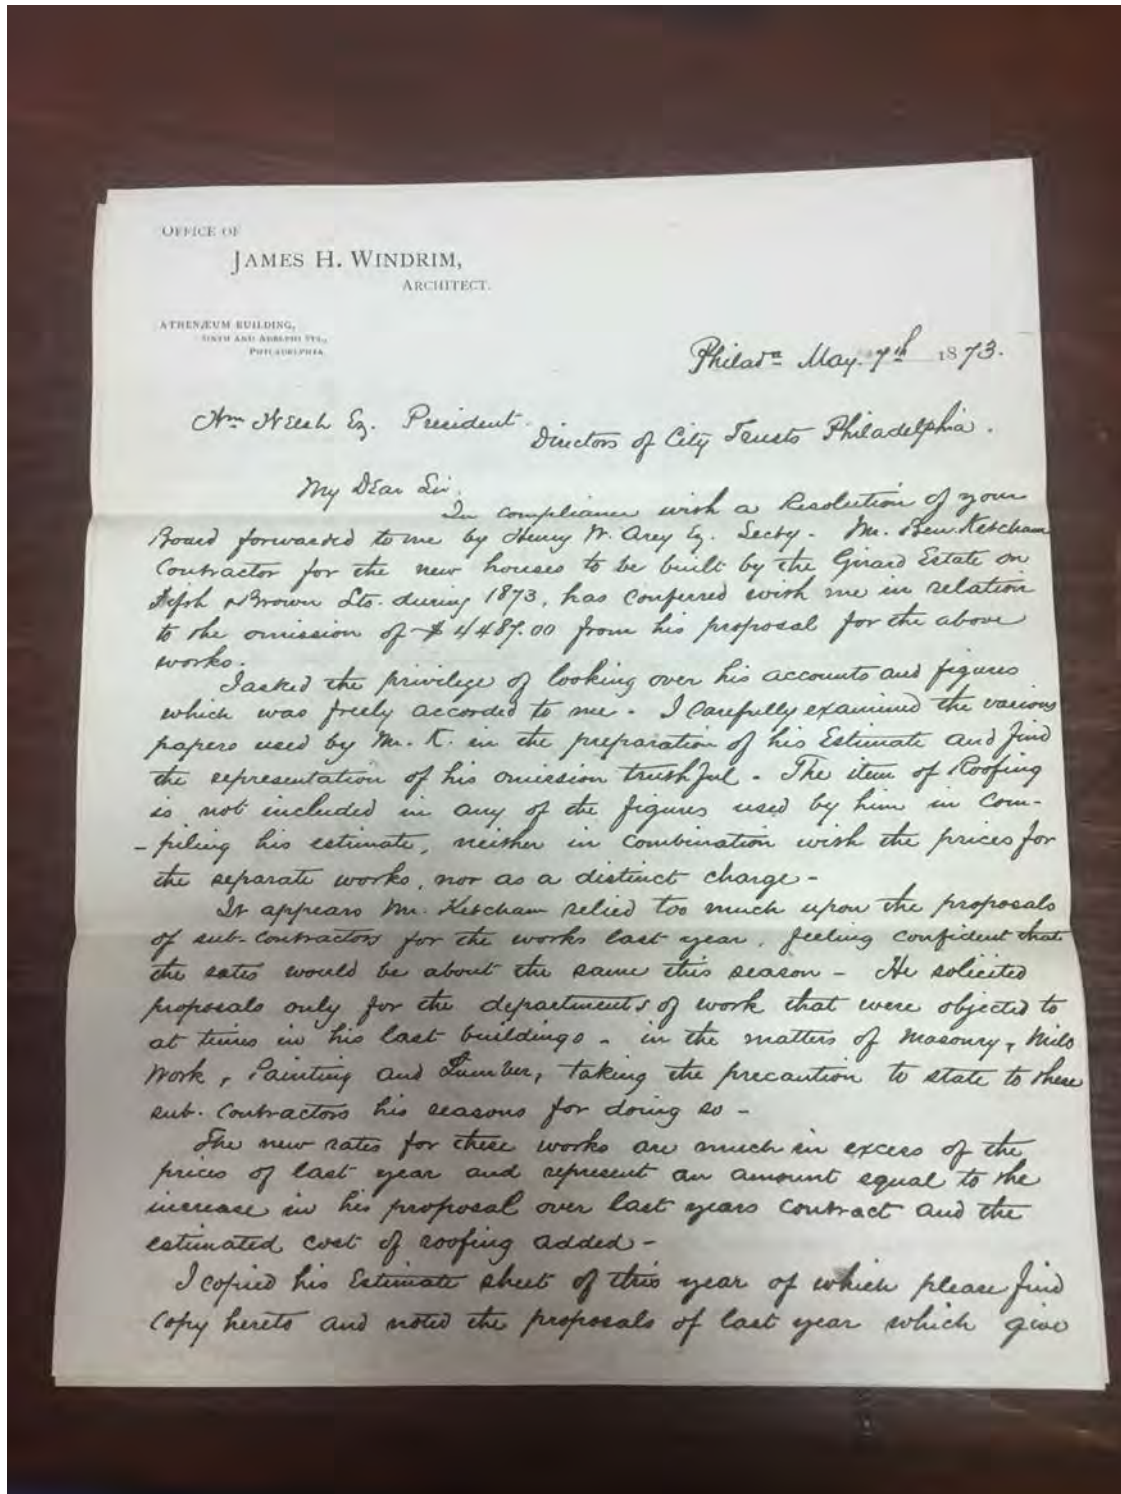 OFFICE OF
JAMES H. WINDRIM,
ARCHITECT.
ATHENÆUM BUILDING,
SIXTH AND ADELPHI STS.,
PHILADELPHIA.
Philada May. 7th 1873.
Wm Welsh Eq. President
Directors of City Trusts Philadelphia.
My Dear Sir.
In compliance with a Resolution of your
Board forwarded to me by Henry W. Arey Eq. Secty. Mr. Ben. Ketcham
Contractor for the new houses to be built by the Girard Estate on
Fifth & Brown Sts. during 1873, has conferred with me in relation
to the omission of $ 4487.00 from his proposal for the above
works.
I asked the privilege of looking over his accounts and figures
which was freely accorded to me. I carefully examined the various
papers used by Mr. K. in the preparation of his Estimate and find
the representation of his omission truthful. The item of Roofing
is not included in any of the figures used by him in com-
-piling his estimate, neither in combination with the prices for
the separate works, nor as a distinct charge -
It appears Mr. Ketcham relied too much upon the proposals
of sub-contractors for the works last year, feeling confident that
the rates would be about the same this season - He solicited
proposals only for the departments of work that were objected to
at times in his last buildings - in the matters of Masonry, Mill
Work, Painting and Lumber, taking the precaution to state to these
sub-contractors his reasons for doing so -
The new rates for these works are much in excess of the
prices of last year and represent an amount equal to the
increase in his proposal over last years contract and the
estimated cost of roofing added -
I copied his Estimate sheet of this year of which please find
copy hereto and noted the proposals of last year which give